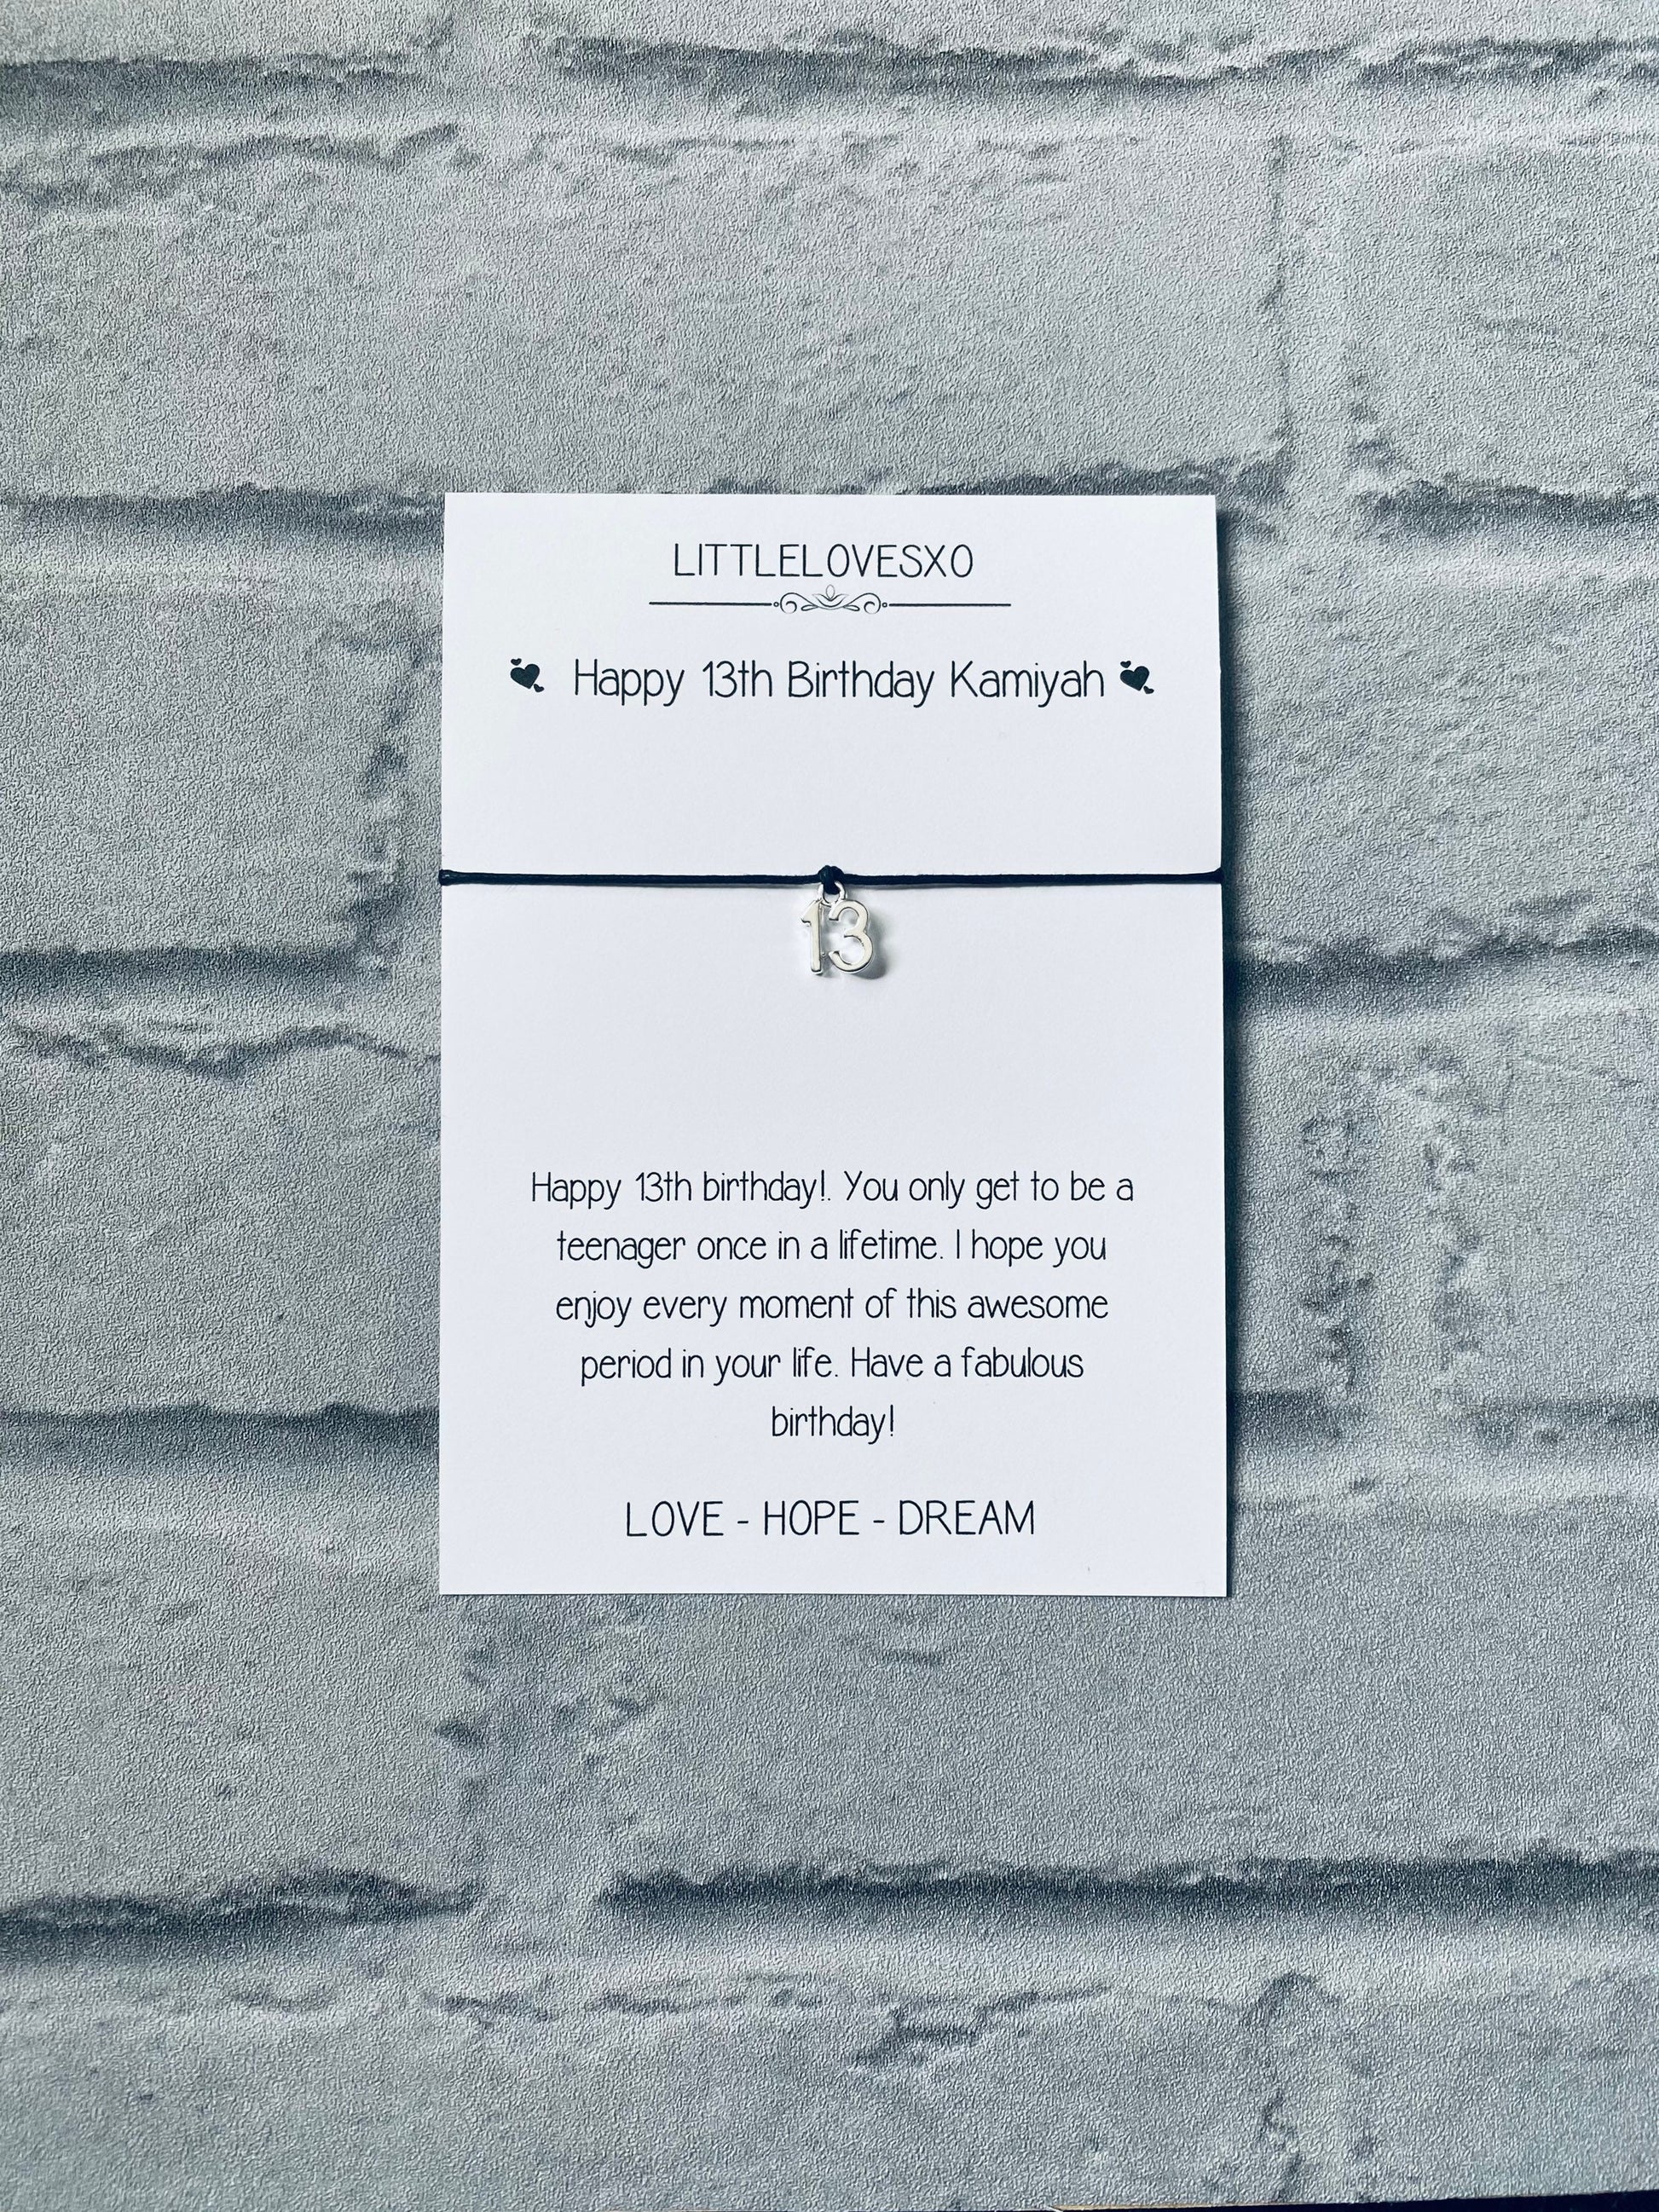 LITTLELOVESXO
Happy 13th Birthday Kamiyah
13
Happy 13th birthday!. You only get to be a
teenager once in a lifetime. I hope you
enjoy every moment of this awesome
period in your life. Have a fabulous
birthday!
LOVE - HOPE - DREAM